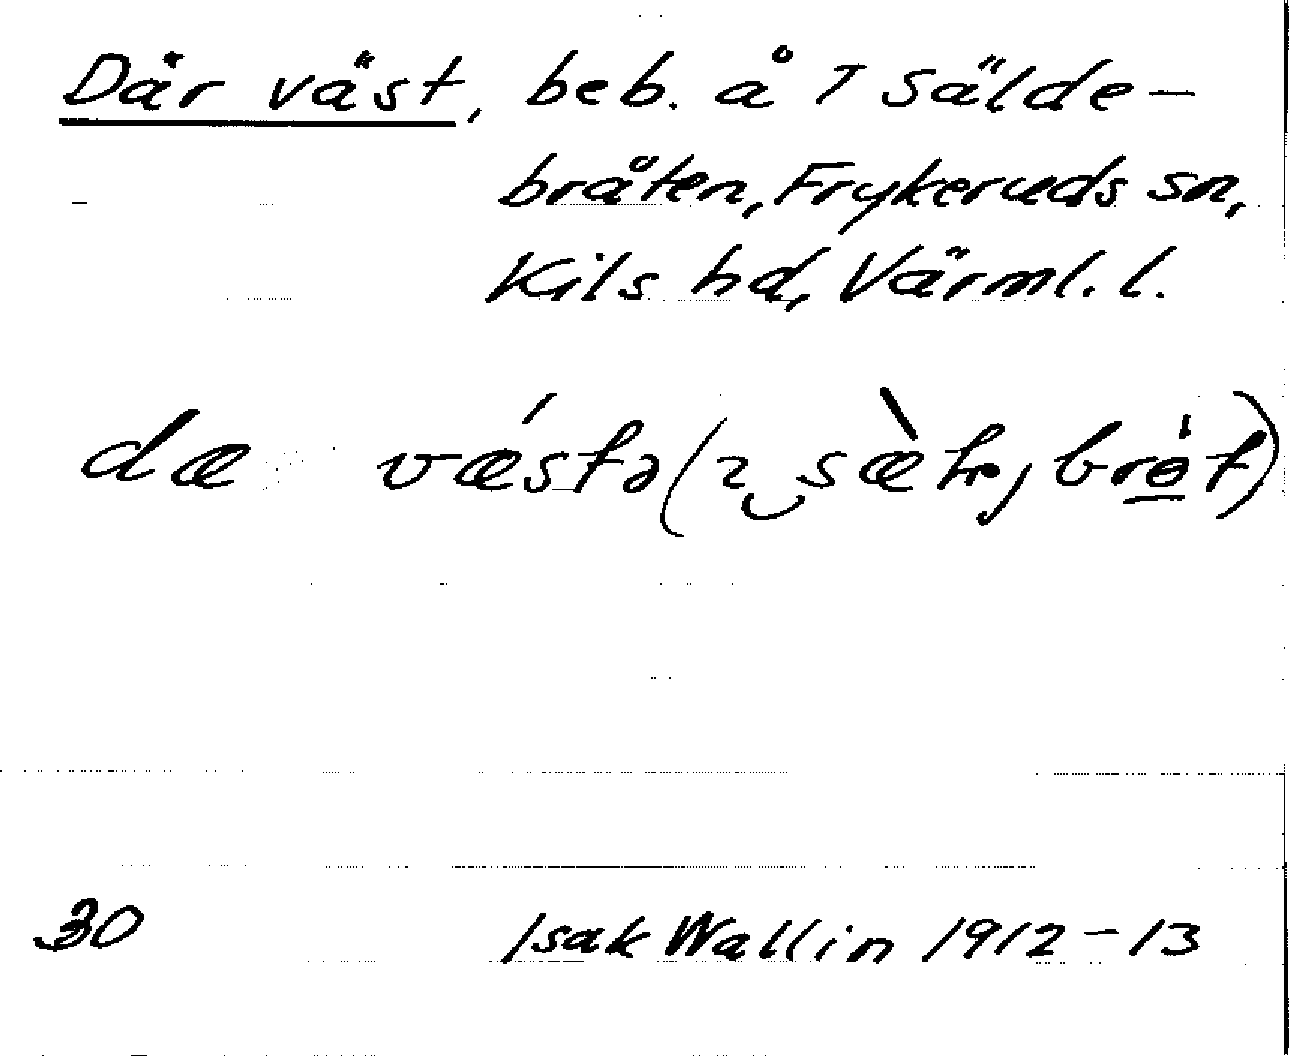 Där väst, beb. å T Sälde-
bråten, Frykeruds sn,
Kils hd, Värml. l.
dæ vǽstə
30 Isak Wallin 1912-13